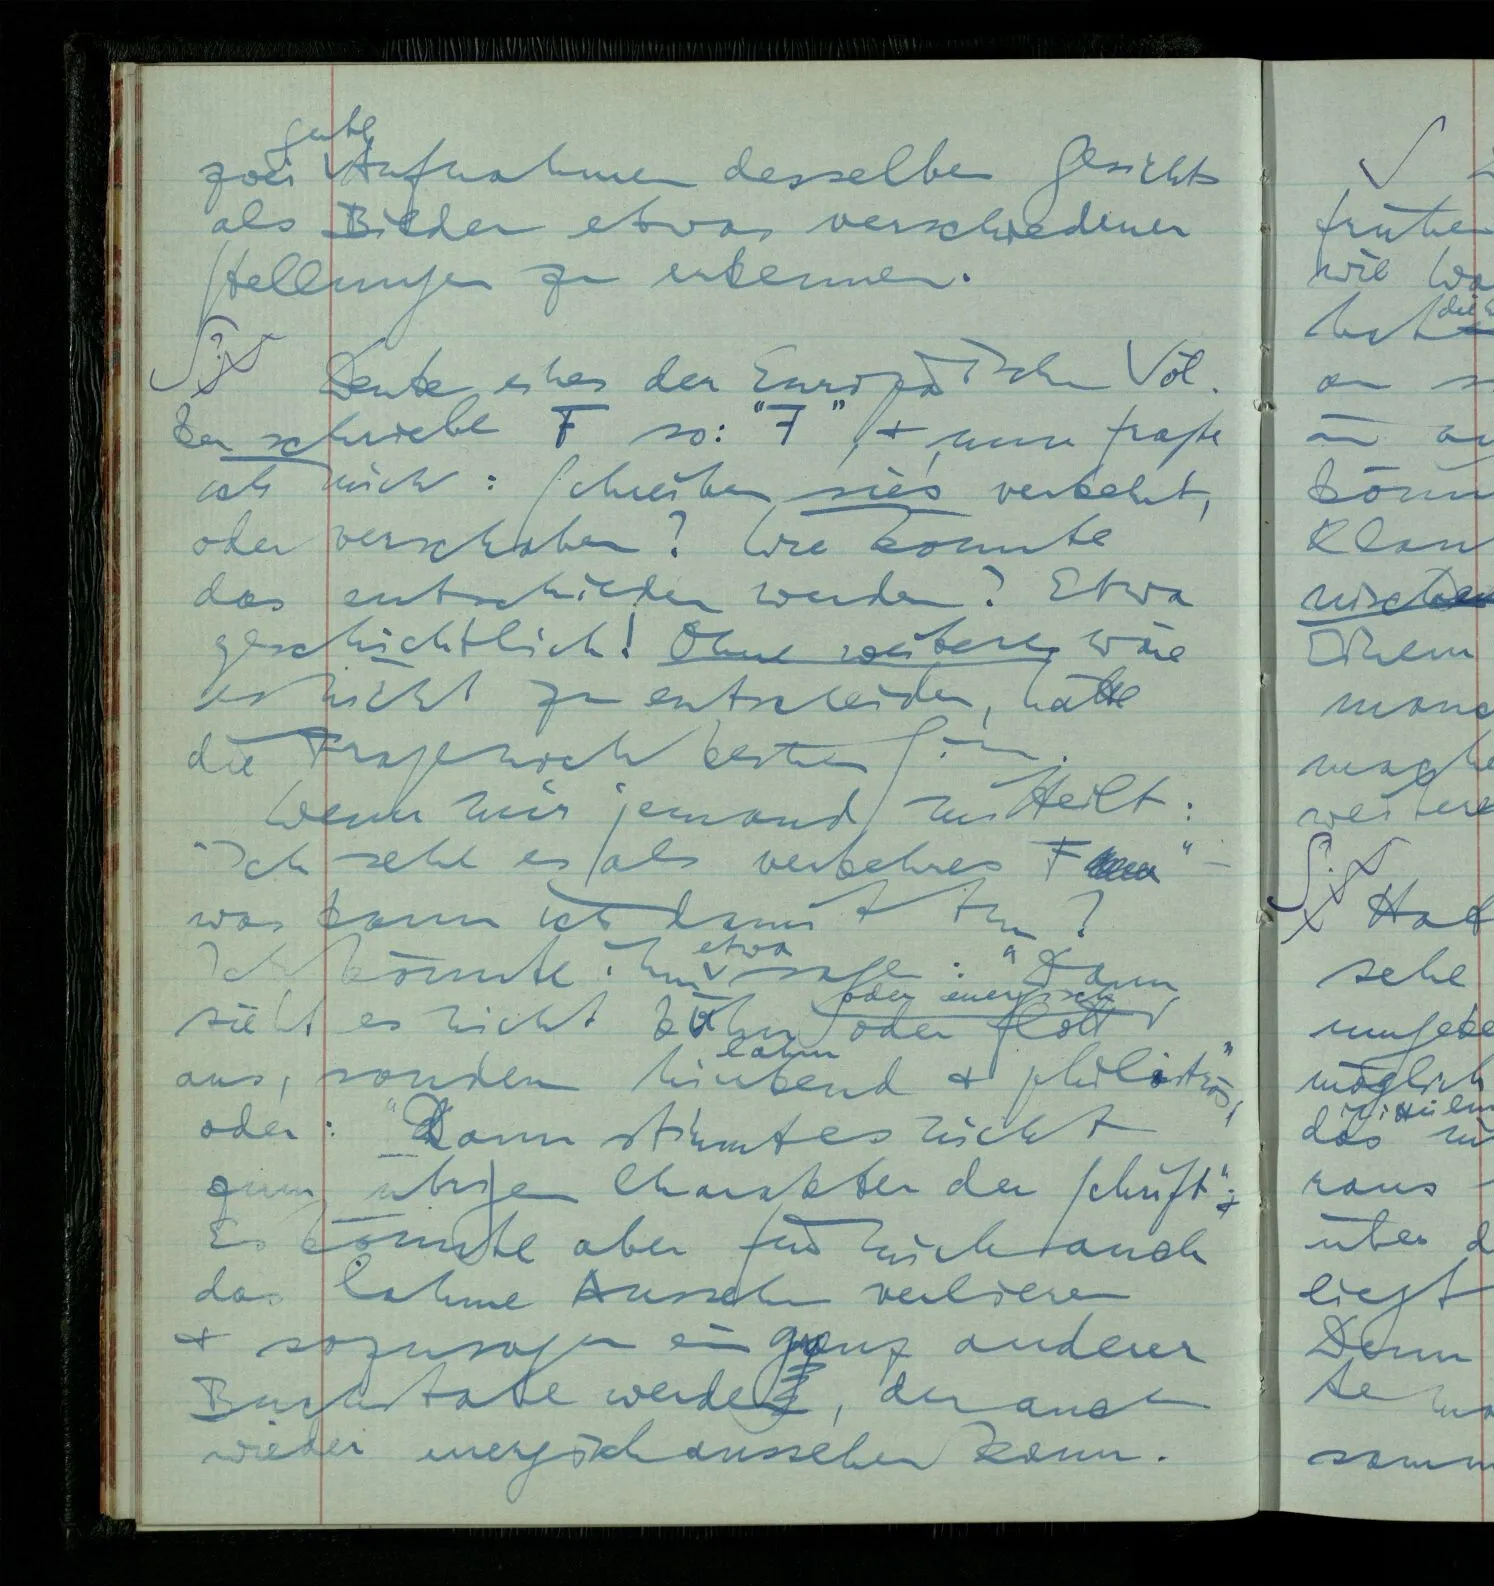 gute
zwei Aufnahmen desselben Gesichts
als Bilder etwas verschiedener
Stellungen zu erkennen.
Denke eines der Europäischen Völ-
ker schriebe F so: "ꟻ", + nun fragte
ich mich: Schreiben sie's verkehrt,
oder verschoben? Wie könnte
das entschieden werden? Etwa
geschichtlich! Ohne weiteres wäre
es nicht zu entscheiden, hätte
die Frage noch keinen Sinn.
Wenn mir jemand mitteilt:
"Ich sehe es als verkehrtes F" –
was kann ich damit tun?
etwa
Ich könnte ihm sagen: "Dann
oder energisch
sieht es nicht kühn oder flott
lahm
aus, sondern hinkend + philiströs",
oder: "Dann stimmt es nicht
zum übrigen Charakter der Schrift".
Es könnte aber für mich auch
das lahme Aussehen verlieren
+ sozusagen ein ganz anderer
Buchstabe werden, der auch
wieder energisch aussehen kann.
früher
wie
an
Klam
Einem
manc
weitere
Hat
sehe
möglich
das
raus
über d
liegt
Denn
te